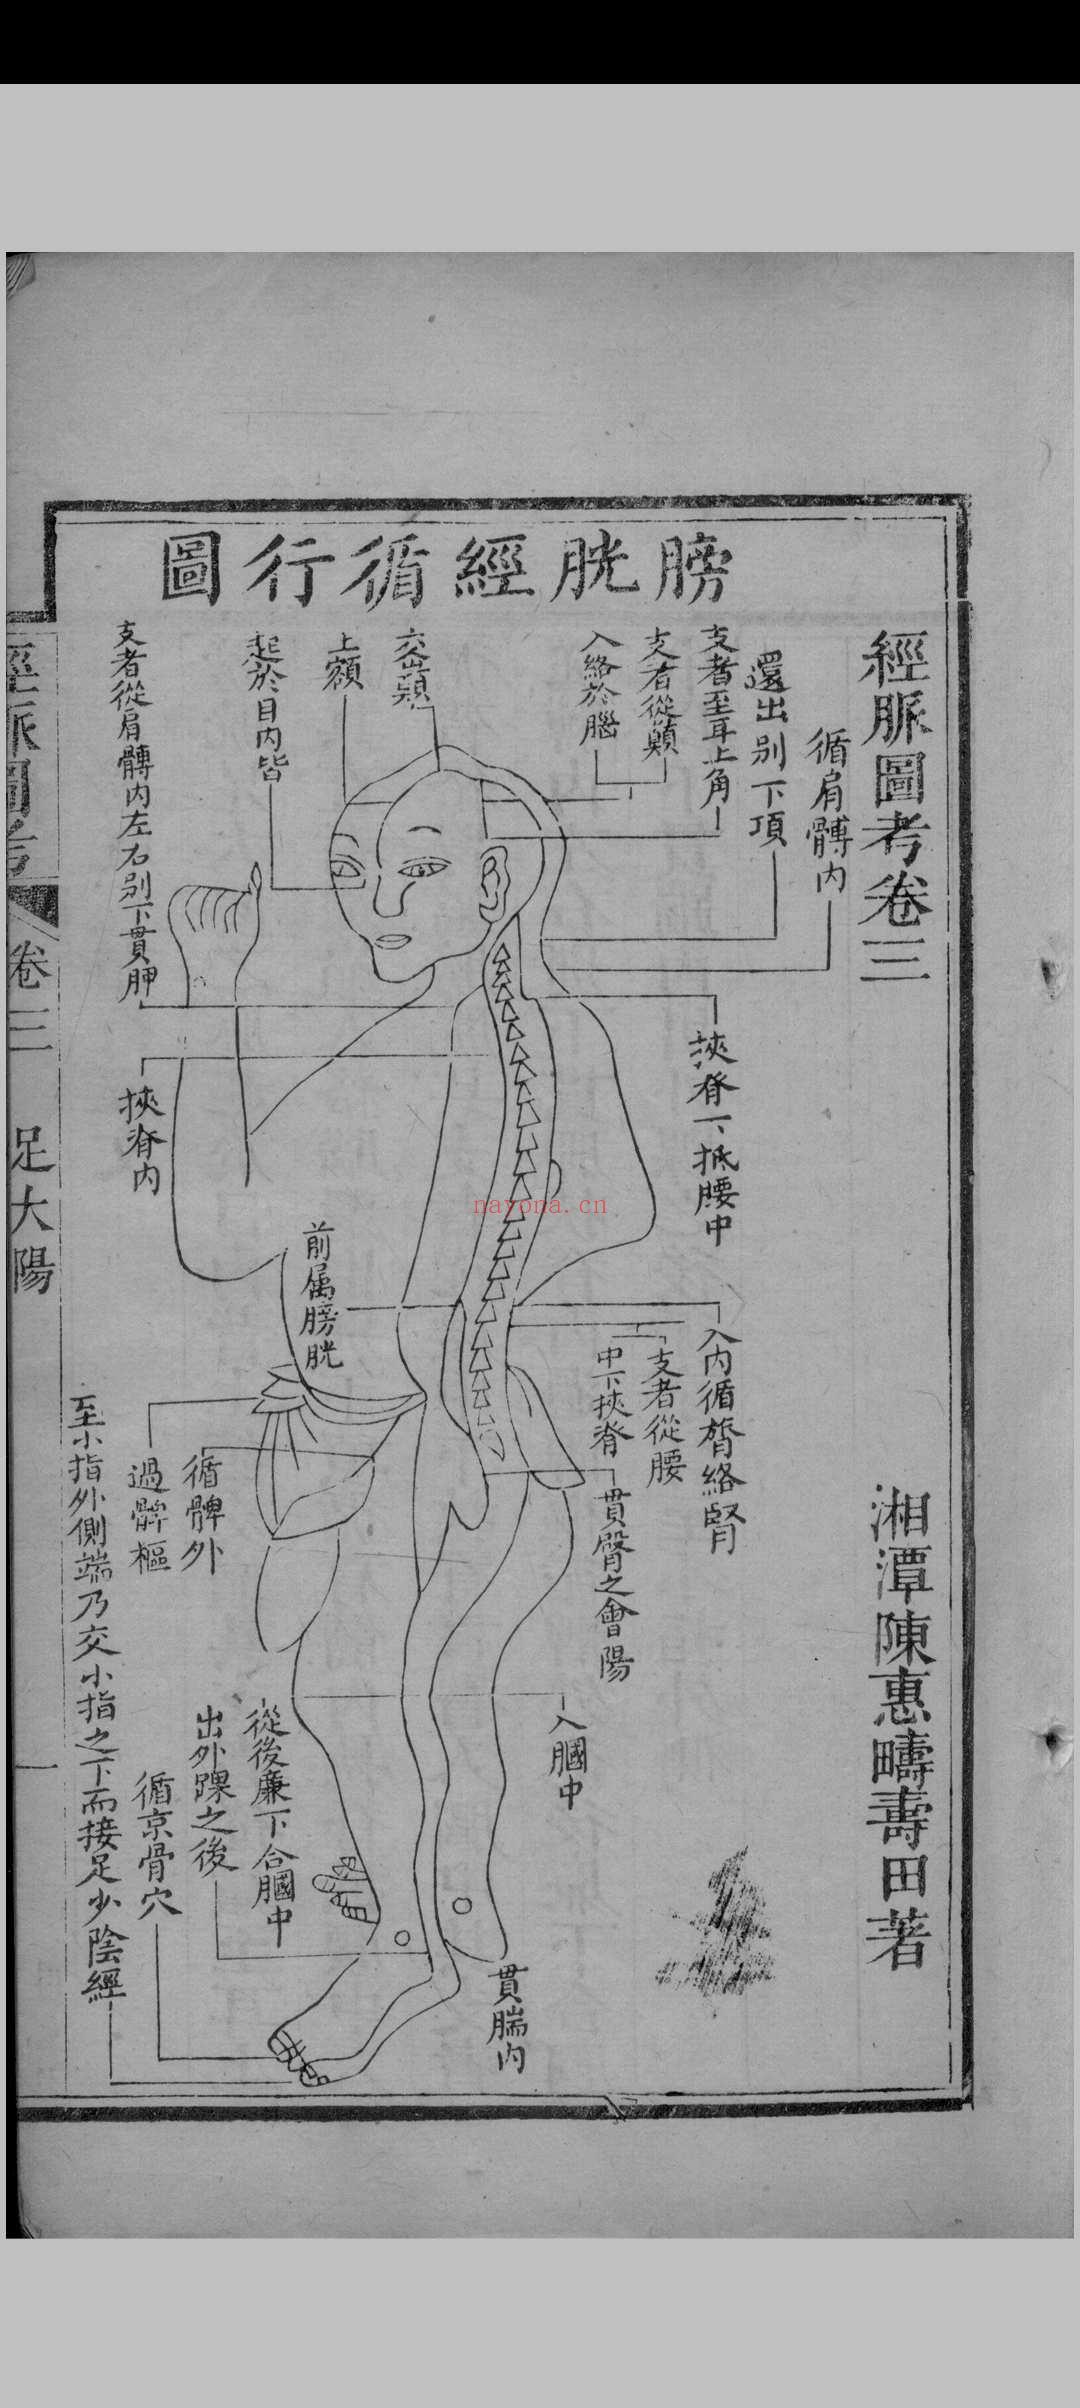 經脈圖考卷三
湘潭陳惠疇壽田著
膀胱經循行圖
循肩髆内
還出别下項
支者至耳上角
支者從巔
入絡於腦
交巔
上額
起於目内眥
支者從肩髆内左右别下貫胛
挾脊内
挾脊下抵腰中
入内循膂絡腎
支者從腰
中下挾脊
貫臀之會陽
前属膀胱
循髀外
過髀樞
入膕中
從後廉下合膕中
出外踝之後
循京骨穴
至小指外側端乃交小指之下而接足少陰經
貫腨内
經脈圖考
卷三
足太陽
一
nayona.cn